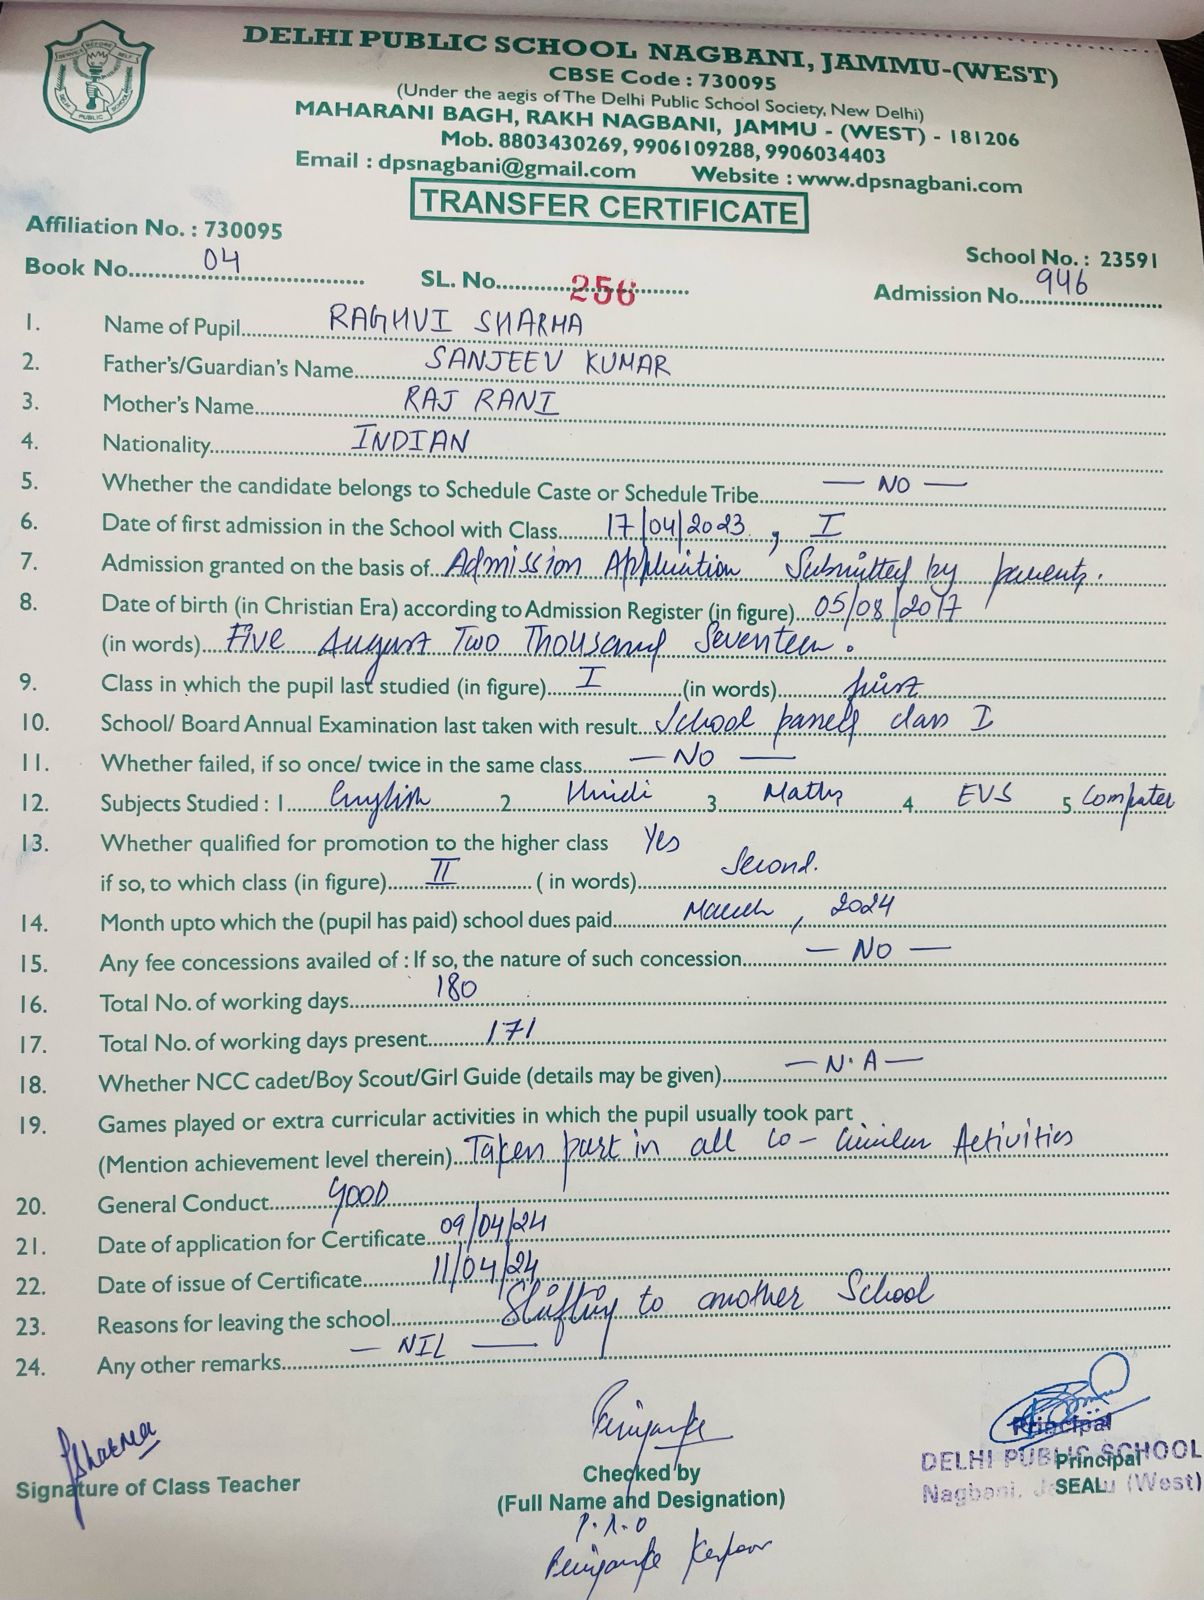 DELHI PUBLIC SCHOOL NAGBANI, JAMMU-(WEST)
CBSE Code : 730095
(Under the aegis of The Delhi Public School Society, New Delhi)
MAHARANI BAGH, RAKH NAGBANI, JAMMU - (WEST) - 181206
Mob. 8803430269, 9906109288, 9906034403
Email : dpsnagbani@gmail.com Website : www.dpsnagbani.com
SERVICE BEFORE SELF
DELHI PUBLIC SCHOOL
TRANSFER CERTIFICATE
Affiliation No. : 730095
School No. : 23591
Book No. 04 SL. No. 256 Admission No. 946
1. Name of Pupil RAGHVI SHARMA
2. Father's/Guardian's Name SANJEEV KUMAR
3. Mother's Name RAJ RANI
4. Nationality INDIAN
5. Whether the candidate belongs to Schedule Caste or Schedule Tribe — NO —
6. Date of first admission in the School with Class 17/04/2023 , I
7. Admission granted on the basis of Admission Application Submitted by parents.
8. Date of birth (in Christian Era) according to Admission Register (in figure) 05/08/2017
(in words) Five August Two Thousand Seventeen.
9. Class in which the pupil last studied (in figure) I (in words) first
10. School/ Board Annual Examination last taken with result School passed class I
11. Whether failed, if so once/ twice in the same class — NO —
12. Subjects Studied : 1 English 2 Hindi 3 Maths 4 EVS 5 Computer
13. Whether qualified for promotion to the higher class Yes
if so, to which class (in figure) II ( in words) Second.
14. Month upto which the (pupil has paid) school dues paid March, 2024
15. Any fee concessions availed of : If so, the nature of such concession — NO —
16. Total No. of working days 180
17. Total No. of working days present 171
18. Whether NCC cadet/Boy Scout/Girl Guide (details may be given) — N.A —
19. Games played or extra curricular activities in which the pupil usually took part
(Mention achievement level therein) Taken part in all Co- Activities
20. General Conduct GOOD
21. Date of application for Certificate 09/04/24
22. Date of issue of Certificate 11/04/24
23. Reasons for leaving the school Shifting to another School
24. Any other remarks — NIL —
Sharma
Signature of Class Teacher
Priyanka
Checked by
(Full Name and Designation)
P.R.O
Priyanka Kapoor
Principal
DELHI PUBLIC SCHOOL
Nagbani, (West)
Principal
SEAL